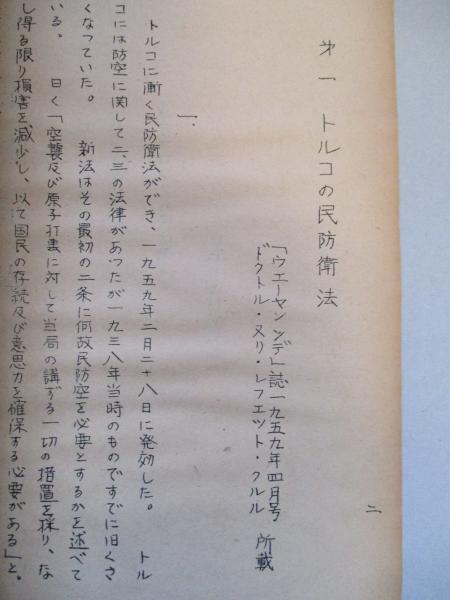 二
第一 トルコの民防衛法
「ウエーヤンンデ」誌一九五九年四月号
ドクトル・ヌリ・レフエツト・クルル 所載
一、
トルコに漸く民防衛法ができ、一九五九年二月二十八日に発効した。 トル
コには防空に関して二、三の法律があつたが一九三八年当時のものですでに旧くさ
くなっていた。 新法はその最初の二条に何故民防空を必要とするかを述べて
いる。 曰く「空襲及び原子打撃に対して当局の講ずる一切の措置を採り、な
し得る限り損害を減少し、以て国民の存続及び意思力を確保する必要がある」と。